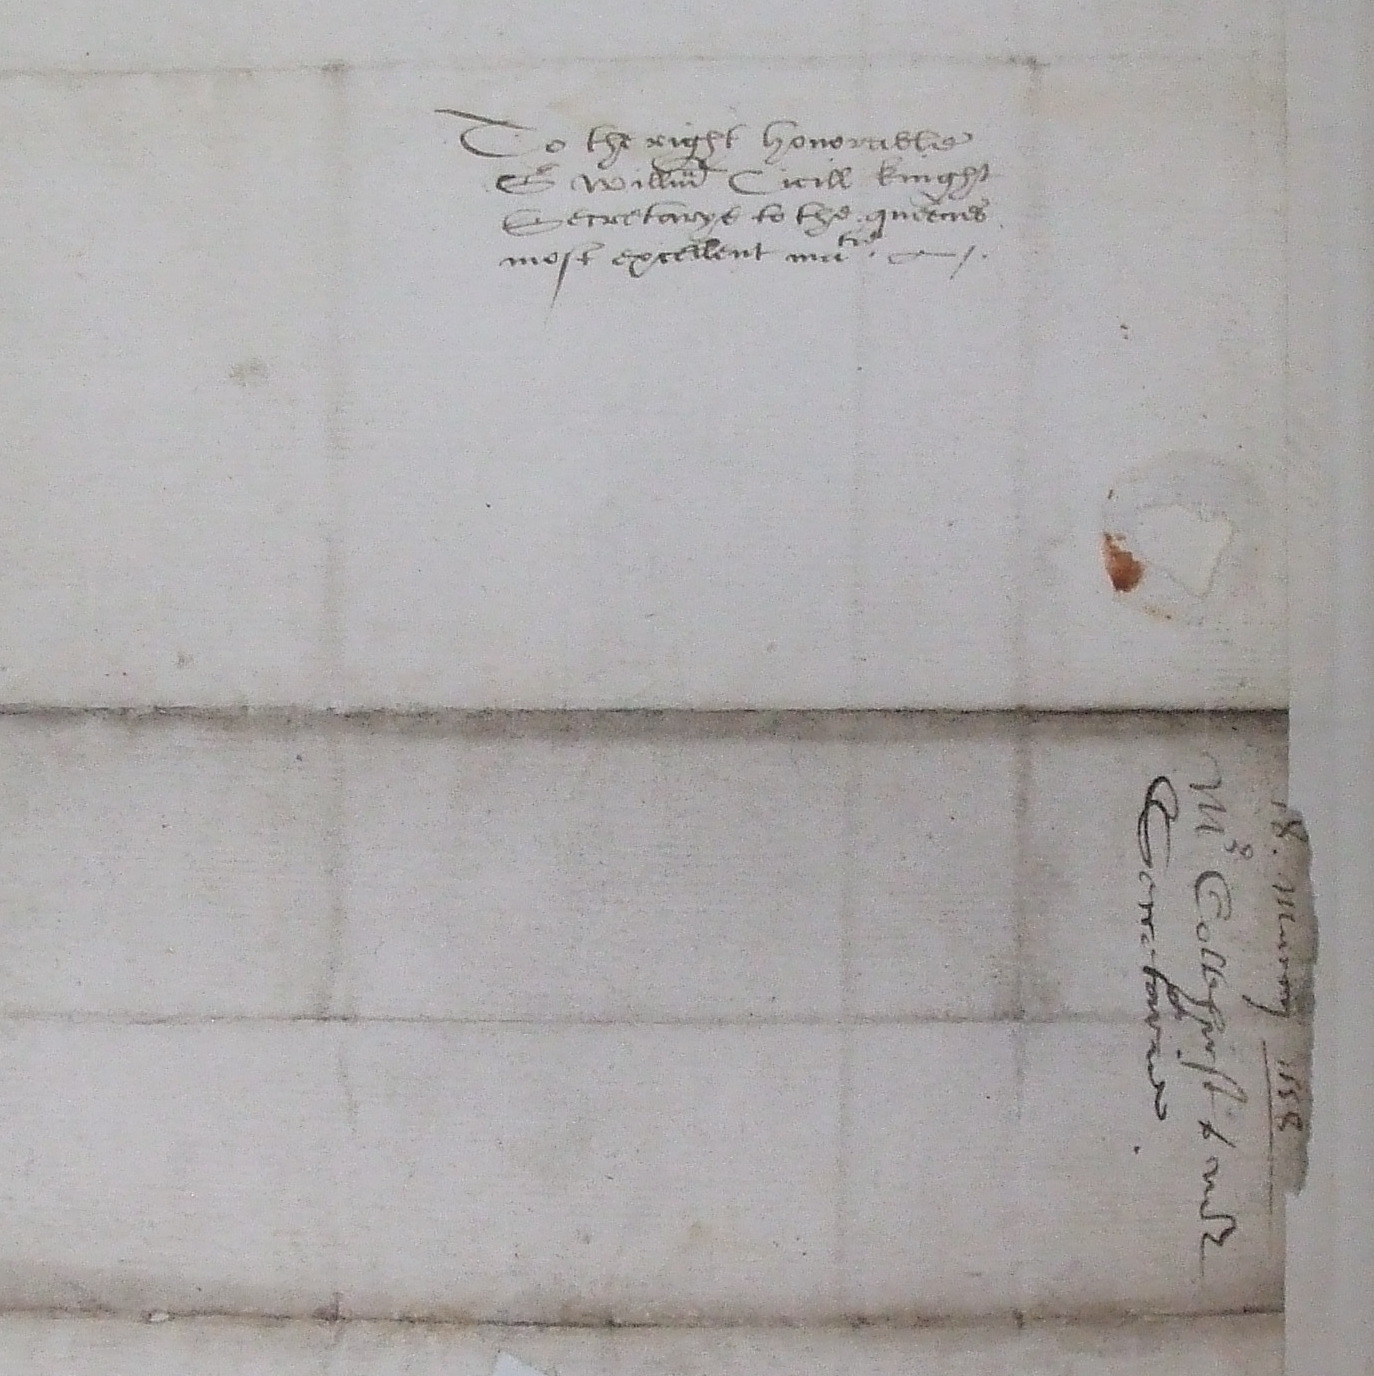 To the right honorable
Sr Willm Cicill knight
Secretarye to the quenes
most excellent matie.
18. Martij 1558
Mr Collyʃhrst & and